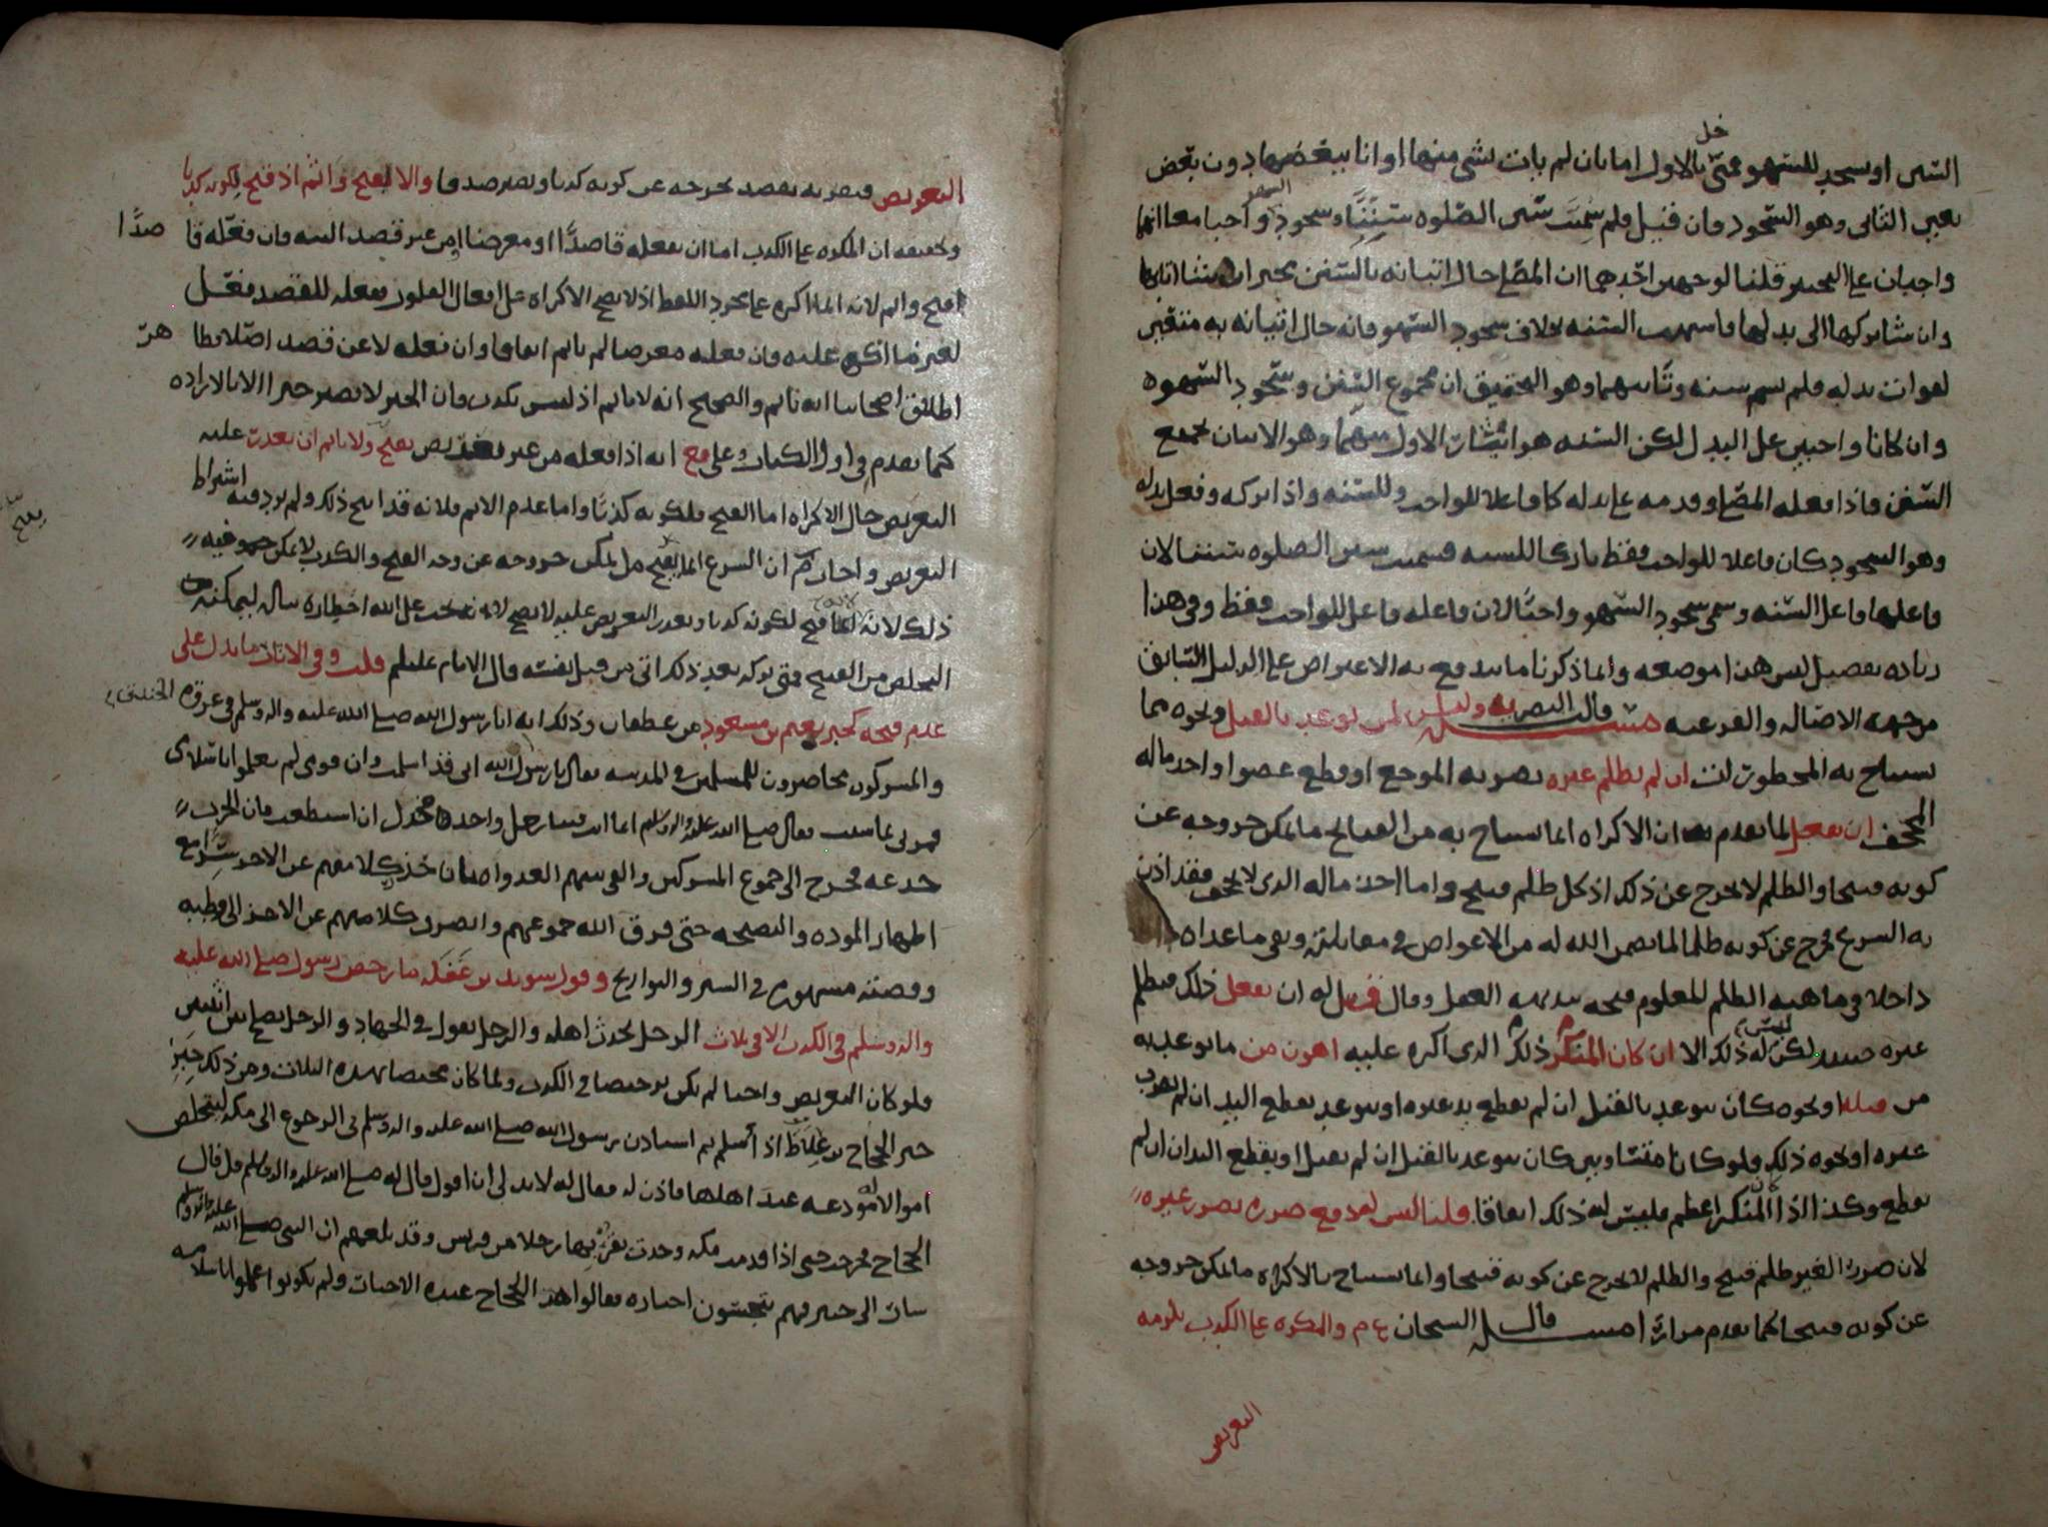 السنن او يسجد للسهو فمتى خل بالاول اما بان لم يات بشي منها او اتا ببعضها دون بعض
تعين الثاني وهو السجود فان قيل فلم سميت سنن الصلوه سننا وسجود السهو واجبا مع انهما
واجبان على التخيير قلنا لوجهين احدهما ان المصلي حال اتيانه بالسنن مخير ان شا اتا بها
وان شا تركها الى بدلها فاشبهت السنه بخلاف سجود السهو فانه حال اتيانه به متعين
لفوات بدله فلم يسم سنه وثانيهما وهو التحقيق ان مجموع السنن وسجود السهو
وان كانا واجبين على البدل لكن السنه هو ايثار الاول منهما وهو الاتيان بجميع
السنن فاذا فعله المصلي وقدمه على بدله كان فاعلا للواجب وللسنه واذا تركه وفعل بدله
وهو السجود كان فاعلا للواجب فقط تاركا للسنه فسميت سنن الصلوه سننا لان
فاعلها فاعل السنه وسمي سجود السهو واجبا لان فاعله فاعل للواجب فقط وفي هذا
زياده تفصيل ليس هذا موضعه وانما ذكرنا ما يندفع به الاعتراض على الدليل السابق
من جهه الاصاله والفرعيه مسئله قالت البصريه وليس لمن توعد بالقتل ونحوه مما
يستباح به المحظورات ان لم يظلم غيره بضربه الموجع او قطع عضو او اخذ ماله
المجحف ان يفعل لما تقدم ان الاكراه انما يستباح به من القبائح ما يمكن خروجه عن
كونه قبيحا والظلم لا يخرج عن ذلك اذ كل ظلم قبيح واما اخذ ماله الذي لا يجحف فقد اذن
به الشرع فخرج عن كونه ظلما لما يضمن الله له من الاعواض في مقابلته وبقي ما عداه
داخلا في ماهيه الظلم المعلوم قبحه ببديهه العقل وقال له ان يفعل ذلك فيظلم
غيره حينئذ لكن ليس له ذلك الا ان كان المنكر ذلك الذي اكره عليه اهون من ما توعد به
من قبله او نحوه كان يتوعد بالقتل ان لم يقطع يد غيره او يتوعد بقطع اليد ان لم يضرب
غيره او نحوه ذلك فلو كانا متساويين كان يتوعد بالقتل ان لم يقتل او بقطع اليد ان لم
يقطع وكذا اذا المنكر اعظم فليس له ذلك اتفاقا قلنا ليس له دفع ضرره بضرر غيره
لان ضرر الغير ظلم قبيح والظلم لا يخرج عن كونه قبيحا وانما يستباح بالاكراه ما يمكن خروجه
عن كونه قبيحا كما تقدم مرارا مسئله قال الشيخان ع م والمكره على الكذب يلزمه
التعريض
التعريض فيضربه بقصد يخرجه عن كونه كذبا ويصير صدقا والا لقبح واثم اذ قبح لكونه كذبا
وتحقيقه ان المكره على الكذب اما ان يفعله قاصدا او معرضا او من غير قصد البته فان فعله قاصدا
قبح واثم لانه انما اكره على مجرد اللفظ اذ لا يصح الاكراه على افعال القلوب بفعله للقصد فعل
لغير ما اكره عليه وان فعله معرضا لم ياثم اتفاقا وان فعله لا عن قصد اصلا فظاهر
اطلاق اصحابنا انه ياثم والصحيح انه لا ياثم اذ ليس بكذب فان الخبر لا يصير خبرا الا بالاراده
كما تقدم في اول الكتاب وعلى مع انه اذا فعله من غير تعريض يقبح ولا ياثم ان تعذرت عليه
التعريض حال الاكراه اما القبح فلكونه كذبا واما عدم الاثم فلانه قد ابيح ذلك ولم يرد فيه اشتراط
التعريض واختار م ان الشرع انما يقبح هل يمكن خروجه عن وجه القبح والكذب لا يمكن فيه
يقبح
ذلك لانه انما قبح لكونه كذبا وتعذر التعريض عليه لا يصح لانه يجب على الله اخطاره بباله ليمكنه من
التخلص من القبيح فمتى تركه بعد ذلك اتي من قبل نفسه قال الامام عليلم قلت وفي الاثار ما يدل على
عدم قبحه كخبر نعيم بن مسعود من غطفان وذلك انه اتا رسول الله صلى الله عليه واله وسلم في غزوه الخندق
والمشركون يحاصرون للمسلمين في المدينه فقال يا رسول الله اني قد اسلمت وان قومي لم يعلموا باسلامي
فمرني بما شئت فقال صلى الله عليه واله وسلم انما انت فينا رجل واحد فخذل ان استطعت فان الحرب
خدعه فخرج الى جموع المشركين والقى بينهم العداوه بان خذل كلا منهم عن الاخر سرا مع
اظهار الموده والنصيحه حتى فرق الله جموعهم وانصرف كلا منهم عن الاخر الى وطنه
وقصته مشهوره في السير والتواريخ وقول سويد بن غفله ما رخص رسول صلى الله عليه
واله وسلم في الكذب الا في ثلاث الرجل يحدث اهله والرجل يقول في الجهاد والرجل يصلح بين اثنين
فلو كان التعريض واجبا لم يكن ترخيصا في الكذب ولما كان مختصا بهذه الثلاث ومن ذلك خبر
خبر الحجاج بن علاط اذ اسلم ثم استاذن رسول الله صلى الله عليه واله وسلم في الرجوع الى مكه ليتخلص
اموالا له مودعه عند اهلها فاذن له فقال له لا بد لي ان اقول قال له صلى الله عليه واله وسلم قل قال
الحجاج فخرجت حتى اذا قدمت مكه وجدت بقربها رجلا من قريش وقد بلغهم ان النبي صلى الله عليه واله وسلم
سار الى خيبر فهم يتجسسون اخباره فقالوا هذا الحجاج عنده الاخبار ولم يكونوا علموا باسلامه